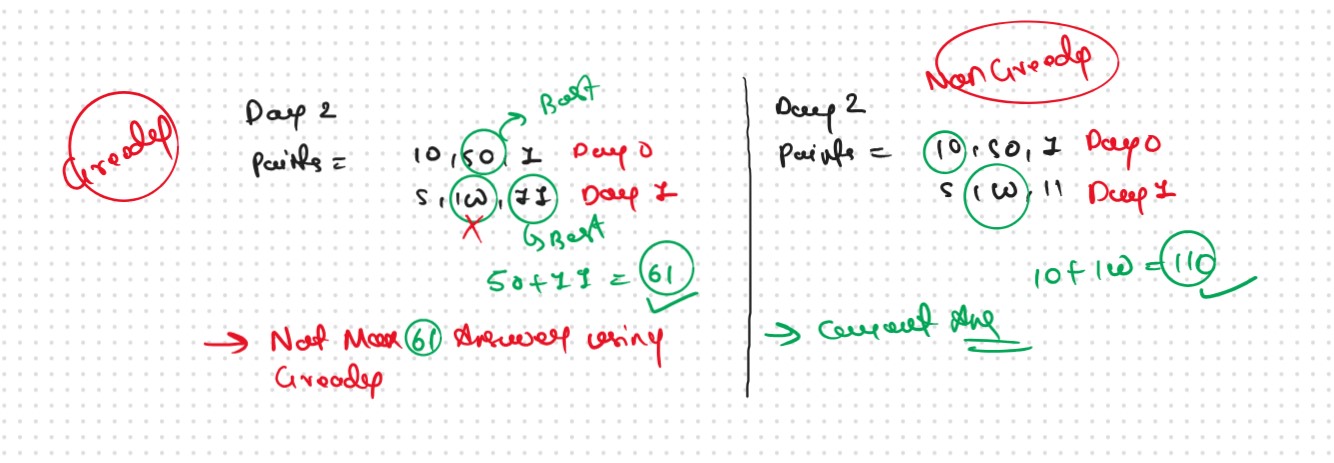 Greedy
Day 2
Points =
10, 50, 1 Day 0
Best
5, 100, 11 Day 1
Best
50 + 11 = 61
→ Not Max 61 Answer using
Greedy
Non Greedy
Day 2
Points = 10, 50, 1 Day 0
5 100, 11 Day 1
10 + 100 = 110
→ Correct Ans